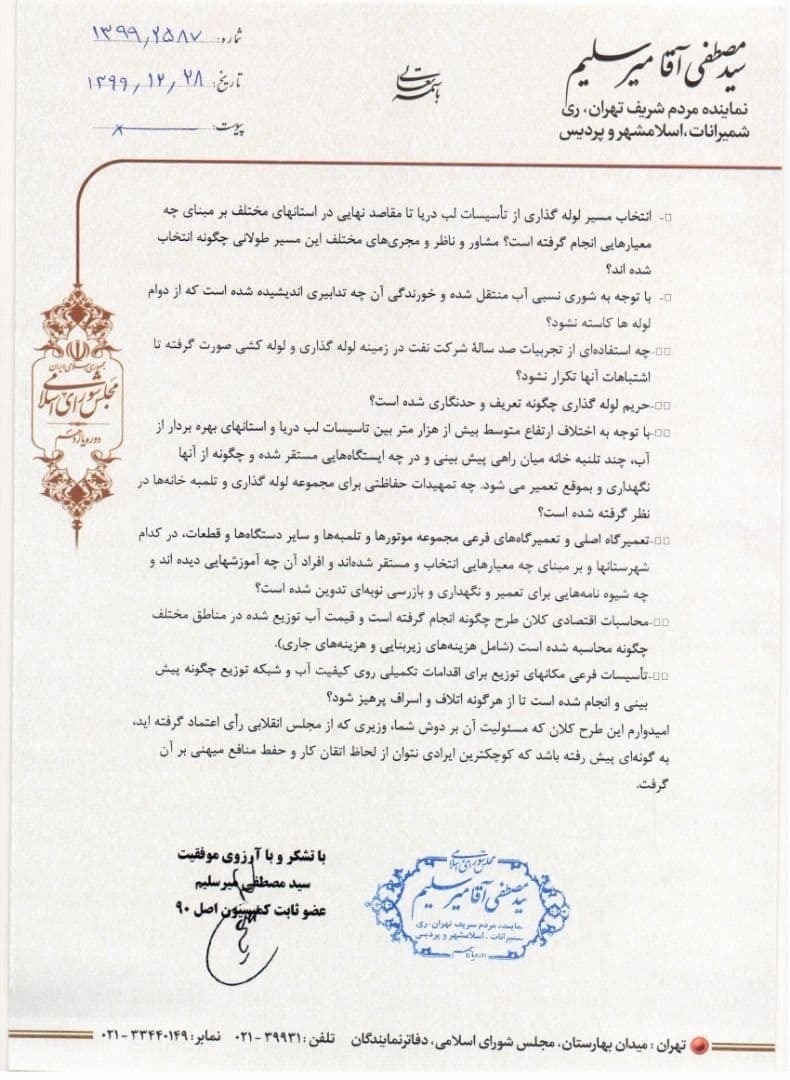 باسمه تعالی
سید مصطفی آقا میرسلیم
نماینده مردم شریف تهران، ری
شمیرانات، اسلامشهر و پردیس
شماره: ۱۳۹۹٫۲۵۸۷
تاریخ: ۱۳۹۹٫۱۲٫۲۸
پیوست: ×
جمهوری اسلامی ایران
مجلس شورای اسلامی
دوره یازدهم
□- انتخاب مسیر لوله گذاری از تأسیسات لب دریا تا مقاصد نهایی در استانهای مختلف بر مبنای چه
معیارهایی انجام گرفته است؟ مشاور و ناظر و مجری‌های مختلف این مسیر طولانی چگونه انتخاب
شده اند؟
□- با توجه به شوری نسبی آب منتقل شده و خورندگی آن چه تدابیری اندیشیده شده است که از دوام
لوله ها کاسته نشود؟
□□-چه استفاده‌ای از تجربیات صد سالهٔ شرکت نفت در زمینه لوله گذاری و لوله کشی صورت گرفته تا
اشتباهات آنها تکرار نشود؟
□□-حریم لوله گذاری چگونه تعریف و حدنگاری شده است؟
□□-با توجه به اختلاف ارتفاع متوسط بیش از هزار متر بین تاسیسات لب دریا و استانهای بهره بردار از
آب، چند تلنبه خانه میان راهی پیش بینی و در چه ایستگاه‌هایی مستقر شده و چگونه از آنها
نگهداری و بموقع تعمیر می شود. چه تمهیدات حفاظتی برای مجموعه لوله گذاری و تلمبه خانه‌ها در
نظر گرفته شده است؟
□□-تعمیرگاه اصلی و تعمیرگاه‌های فرعی مجموعه موتورها و تلمبه‌ها و سایر دستگاه‌ها و قطعات، در کدام
شهرستانها و بر مبنای چه معیارهایی انتخاب و مستقر شده‌اند و افراد آن چه آموزشهایی دیده اند و
چه شیوه نامه‌هایی برای تعمیر و نگهداری و بازرسی نوبه‌ای تدوین شده است؟
□□-محاسبات اقتصادی کلان طرح چگونه انجام گرفته است و قیمت آب توزیع شده در مناطق مختلف
چگونه محاسبه شده است (شامل هزینه‌های زیربنایی و هزینه‌های جاری).
□□-تأسیسات فرعی مکانهای توزیع برای اقدامات تکمیلی روی کیفیت آب و شبکه توزیع چگونه پیش
بینی و انجام شده است تا از هرگونه اتلاف و اسراف پرهیز شود؟
امیدوارم این طرح کلان که مسئولیت آن بر دوش شما، وزیری که از مجلس انقلابی رأی اعتماد گرفته اید،
به گونه‌ای پیش رفته باشد که کوچکترین ایرادی نتوان از لحاظ اتقان کار و حفظ منافع میهنی بر آن
گرفت.
با تشکر و با آرزوی موفقیت
سید مصطفی میرسلیم
عضو ثابت کمیسیون اصل ۹۰
مجلس شورای اسلامی
سید مصطفی آقا میرسلیم
نماینده مردم شریف تهران، ری
شمیرانات، اسلامشهر و پردیس
دوره یازدهم
تهران: میدان بهارستان، مجلس شورای اسلامی، دفاتر نمایندگان تلفن: ۳۹۹۳۱-۰۲۱ نمابر: ۳۳۴۴۰۱۴۹-۰۲۱